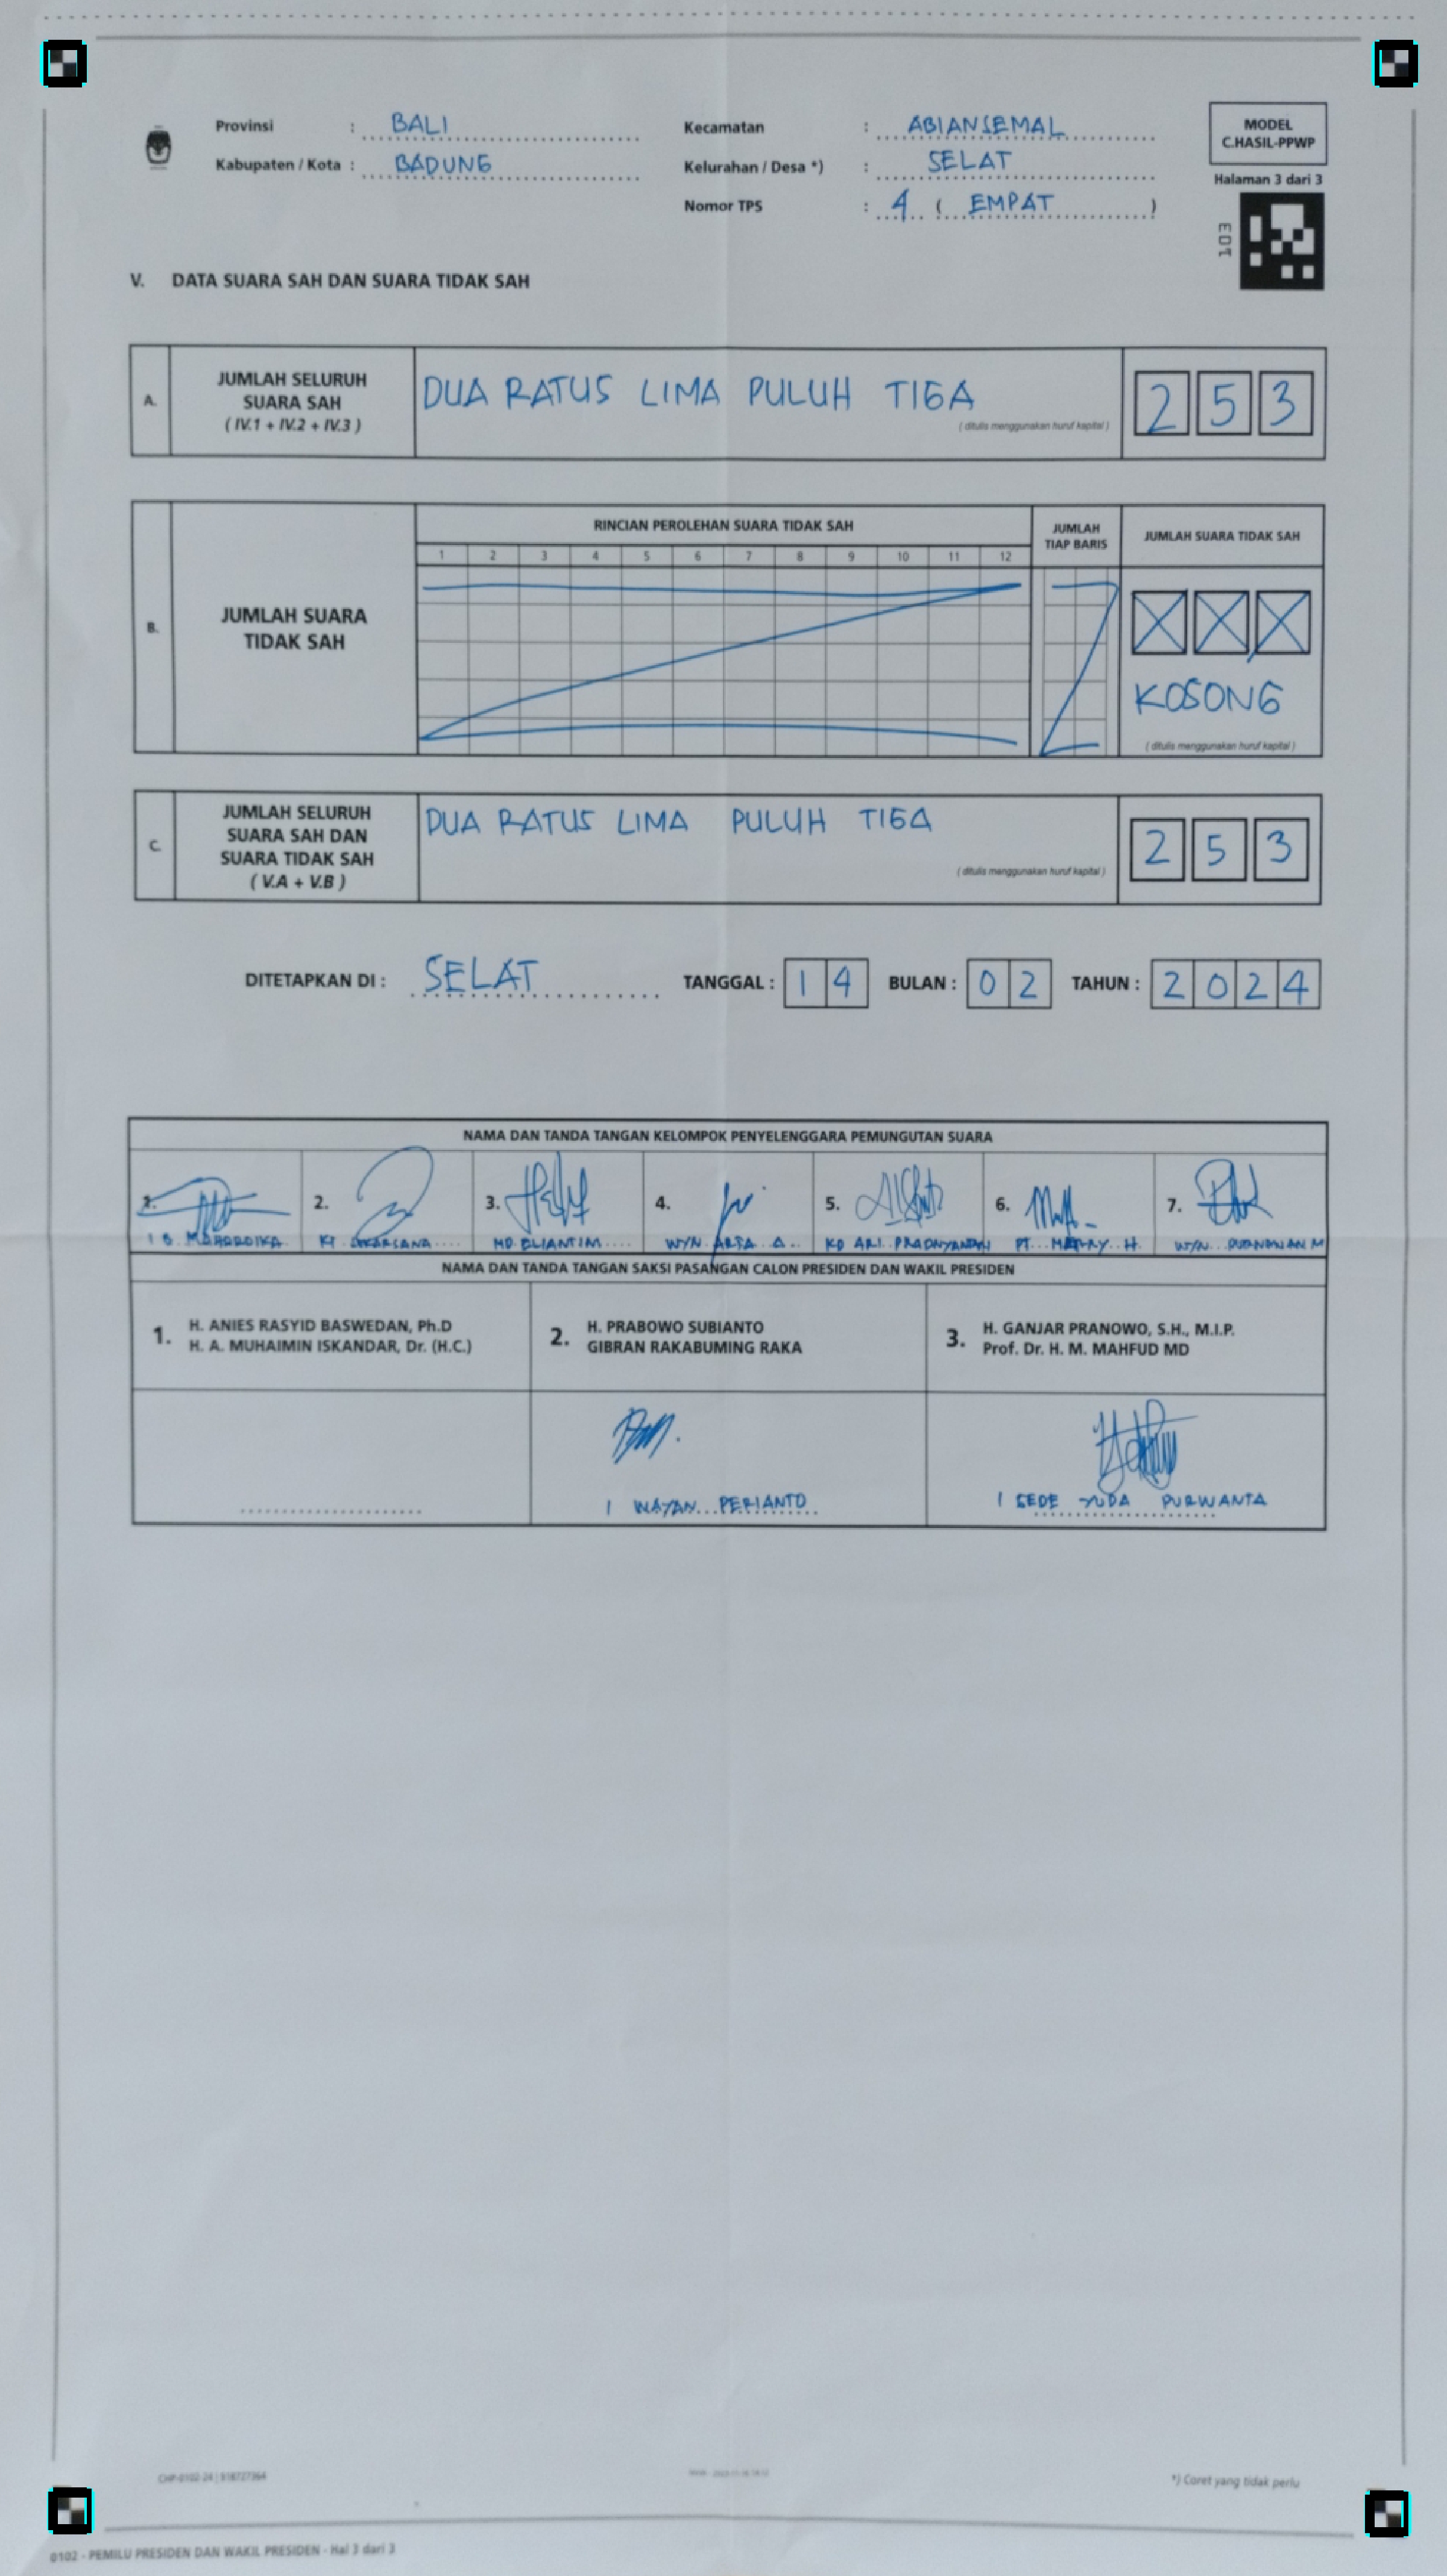 Provinsi : BALI
Kabupaten / Kota : BADUNG
Kecamatan : ABIANSEMAL
Kelurahan / Desa *) : SELAT
Nomor TPS : 4 ( EMPAT )
MODEL
C.HASIL-PPWP
Halaman 3 dari 3
V. DATA SUARA SAH DAN SUARA TIDAK SAH
A.
JUMLAH SELURUH
SUARA SAH
( IV.1 + IV.2 + IV.3 )
DUA RATUS LIMA PULUH TIGA
( ditulis menggunakan huruf kapital )
2 5 3
B.
JUMLAH SUARA
TIDAK SAH
RINCIAN PEROLEHAN SUARA TIDAK SAH
1 2 3 4 5 6 7 8 9 10 11 12
JUMLAH
TIAP BARIS
JUMLAH SUARA TIDAK SAH
X X X
KOSONG
( ditulis menggunakan huruf kapital )
C.
JUMLAH SELURUH
SUARA SAH DAN
SUARA TIDAK SAH
( V.A + V.B )
DUA RATUS LIMA PULUH TIGA
( ditulis menggunakan huruf kapital )
2 5 3
DITETAPKAN DI : SELAT TANGGAL : 14 BULAN : 02 TAHUN : 2024
NAMA DAN TANDA TANGAN KELOMPOK PENYELENGGARA PEMUNGUTAN SUARA
1. 2. 3. 4. 5. 6. 7.
I B. MAHARDIKA
WYN ARTA A.
KD ARI PRADNYANTARI
NAMA DAN TANDA TANGAN SAKSI PASANGAN CALON PRESIDEN DAN WAKIL PRESIDEN
1. H. ANIES RASYID BASWEDAN, Ph.D
H. A. MUHAIMIN ISKANDAR, Dr. (H.C.)
2. H. PRABOWO SUBIANTO
GIBRAN RAKABUMING RAKA
3. H. GANJAR PRANOWO, S.H., M.I.P.
Prof. Dr. H. M. MAHFUD MD
I WAYAN PERIANTO
I GEDE YUDA PURWANTA
*) Coret yang tidak perlu
0102 - PEMILU PRESIDEN DAN WAKIL PRESIDEN - Hal 3 dari 3